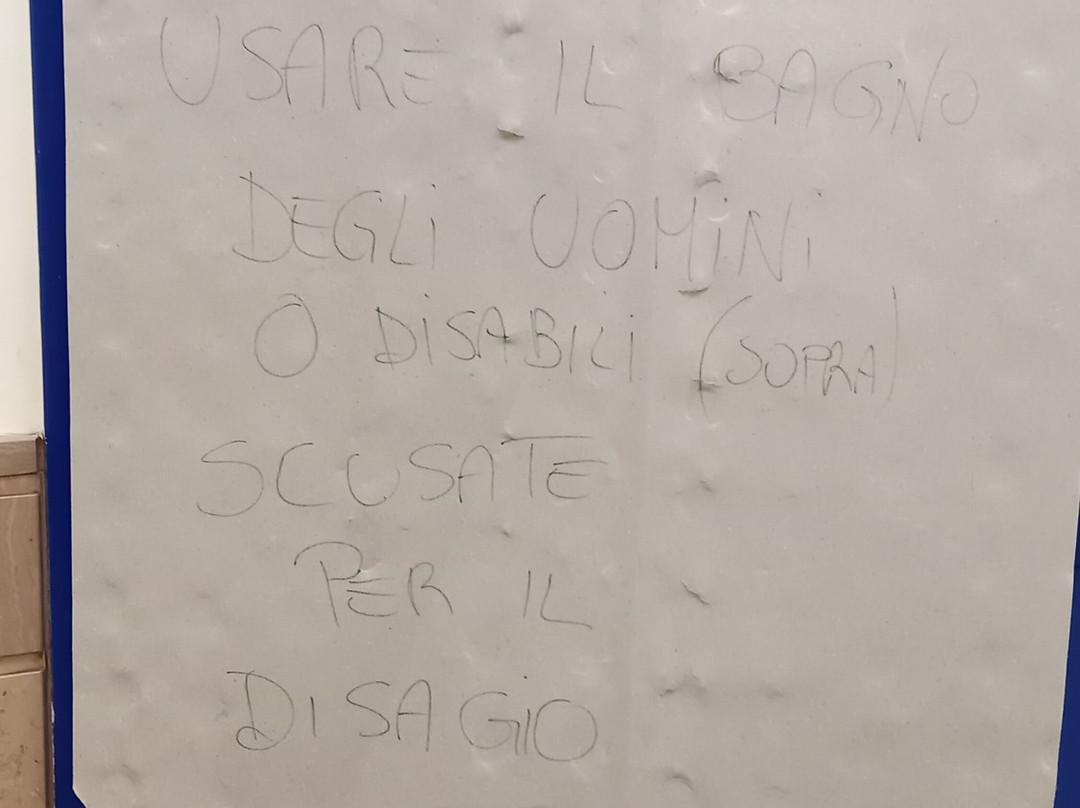 USARE IL BAGNO
DEGLI UOMINI
O DISABILI (SOPRA)
SCUSATE
PER IL
DISAGIO